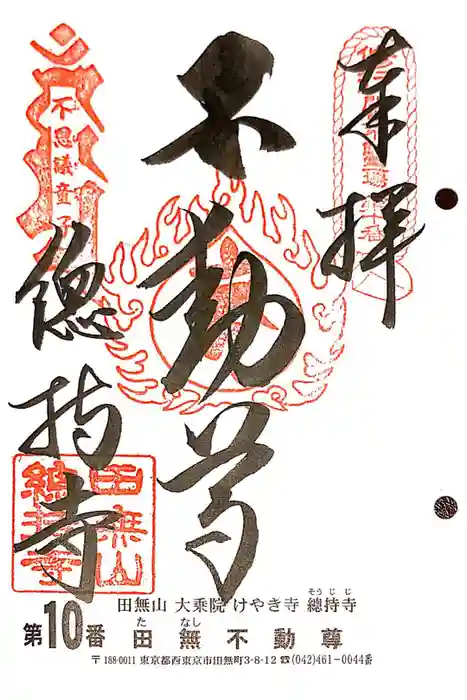 奉拝
不動尊
總持寺
不思議童子
田無山
總持寺
田無山 大乗院 けやき寺 總持寺
そうじじ
第10番 田無不動尊
た なし
〒188-0011 東京都西東京市田無町3-8-12 ☎(042)461-0044番